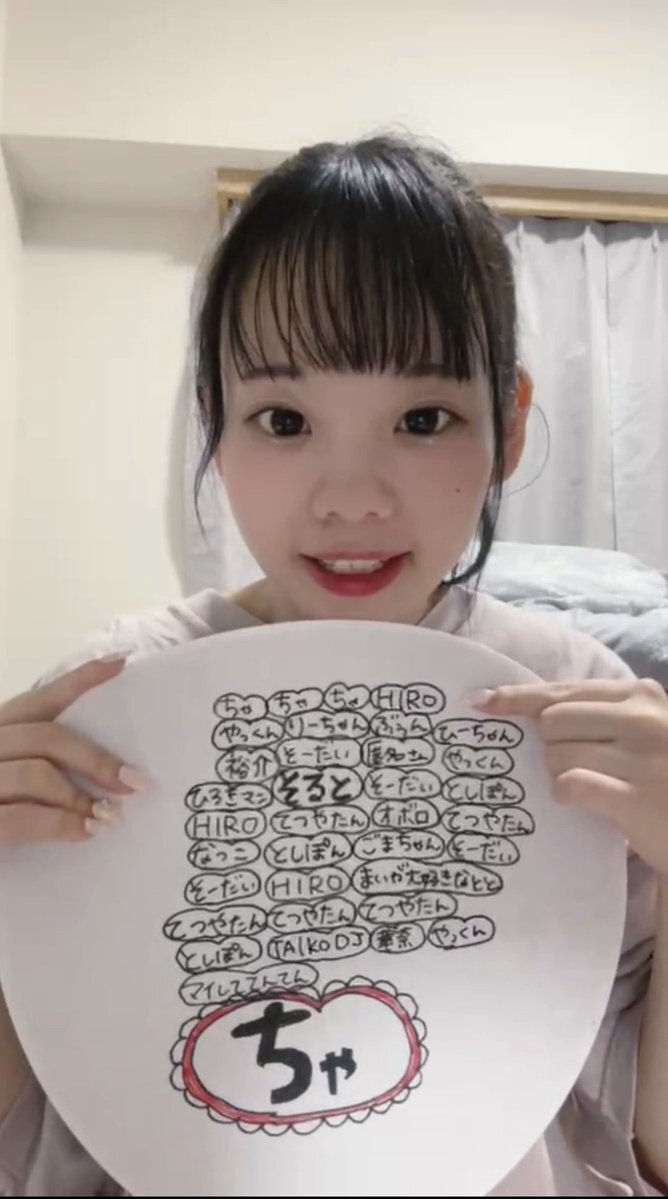 ちゃ ちゃ ちゃ HIRO
やっくん りーちゃん ぶぅん ひーちゃん
裕介 そーだい 匿名さん やっくん
ひろきマン そると そーだい としぽん
HIRO てつやたん オボロ てつやたん
なっこ としぽん ごまちゃん そーだい
そーだい HIRO まいが大好きなとと
てつやたん てつやたん てつやたん
としぽん TAIKO DJ 華奈 やっくん
マイしててんてん
ちゃ